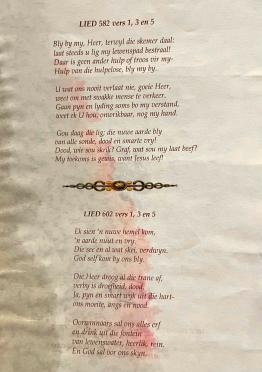 LIED 582 vers 1, 3 en 5
Bly by my, Heer, terwyl die skemer daal:
laat steeds u lig my lewenspad bestraal!
Daar is geen ander hulp of troos vir my-
Hulp van die hulpelose, bly my by.
U wat ons nooit verlaat nie, goeie Heer,
weet om met swakke mense te verkeer.
Gaan pyn en lyding soms bo my verstand,
weet ek U hou, onwrikbaar, nog my hand.
Gou daag die lig; die nuwe aarde bly
van alle sonde, dood en smarte vry!
Dood, wie sou skrik? Graf, wat sou my laat beef?
My toekoms is gewis, want Jesus leef!
LIED 602 vers 1, 3 en 5
Ek sien 'n nuwe hemel kom,
'n aarde nuut en vry.
Die see en al wat skei, verdwyn.
God self kom by ons bly.
Die Heer droog al die trane af,
verby is droefheid, dood.
Ja, pyn en smart wyk uit die hart-
ons moeite, angs en nood.
Oorwinnaars sal ons alles erf
en drink uit die fontein
van lewenswater, heerlik, rein.
En God sal oor ons skyn.